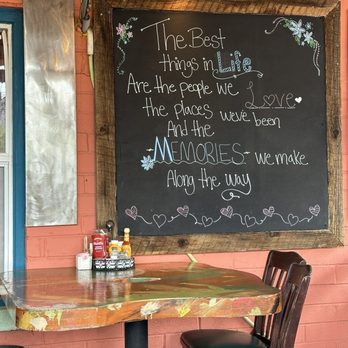 The Best
things in Life
Are the people we Love
the places we've been
And the
MEMORIES - we make
Along the way